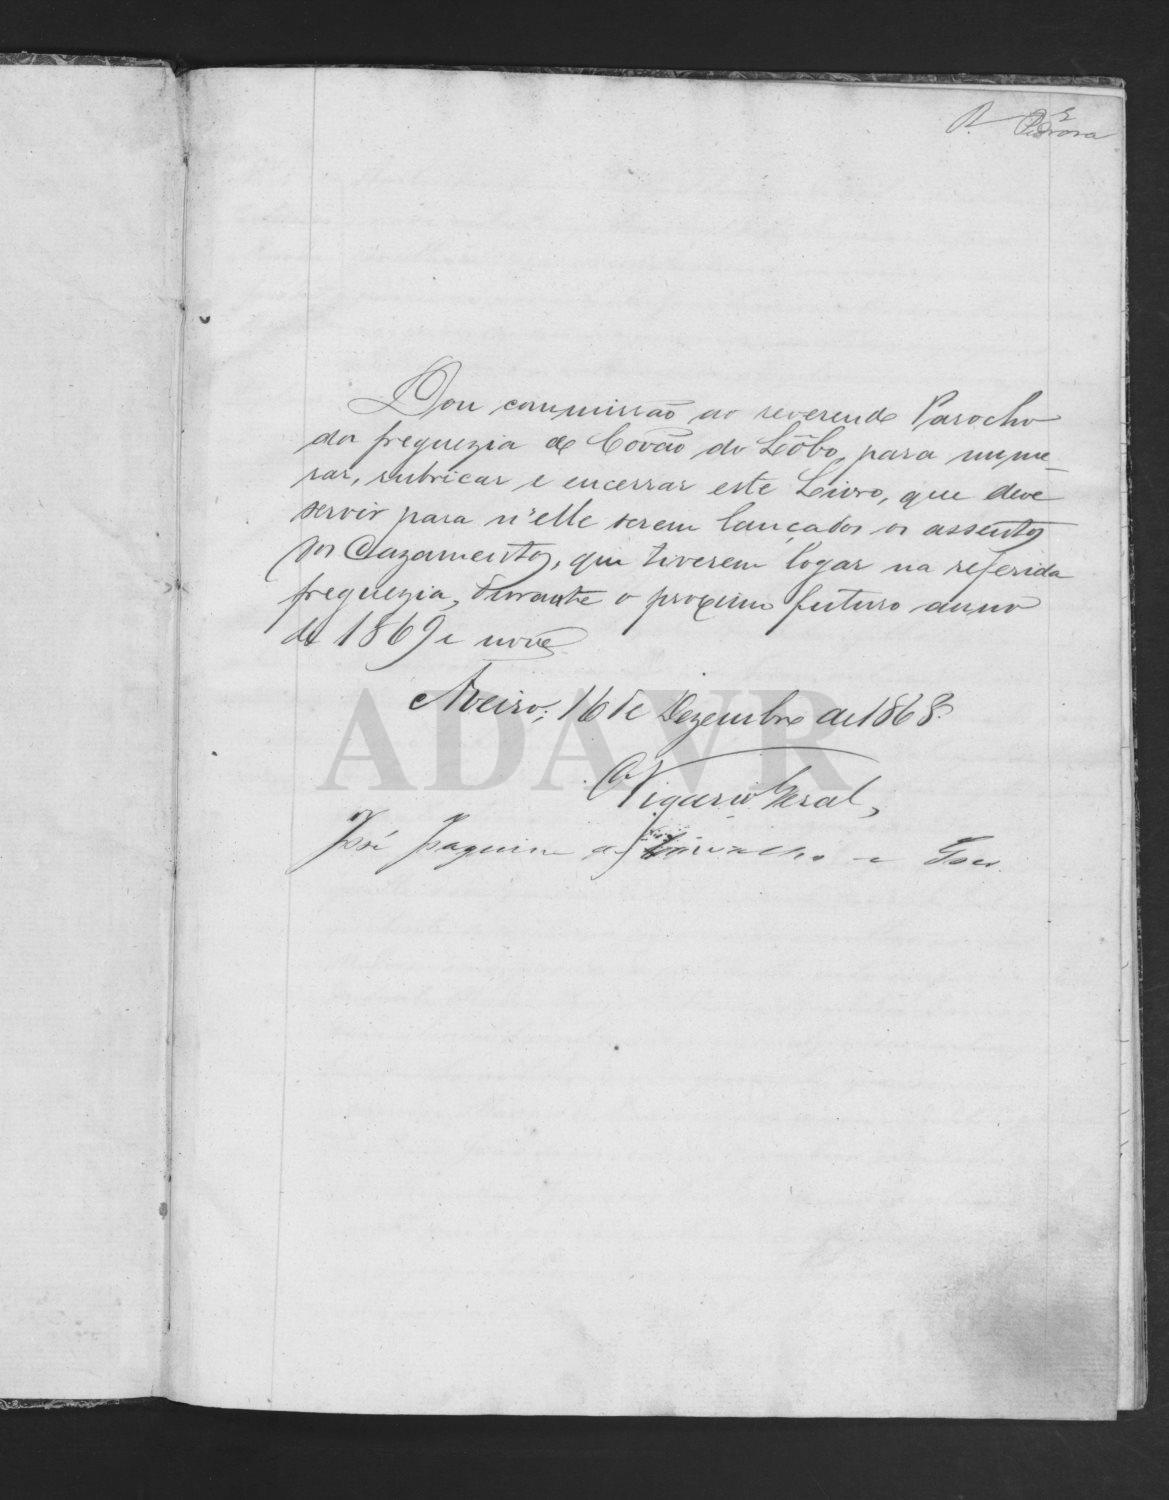 R. Pedrosa
Dou commissão ao reverendo Parocho
da freguezia de Covão do Lôbo, para nume-
rar, rubricar e encerrar este Livro, que deve
servir para n'elle serem lançados os assentos
dos Cazamentos, que tiverem logar na referida
freguezia, durante o proximo futuro anno
de 1869 e nove.
Aveiro, 16 de Dezembro de 1868.
ADAVR
O Vigario Geral,
José Joaquim de Carvalho e Goes.